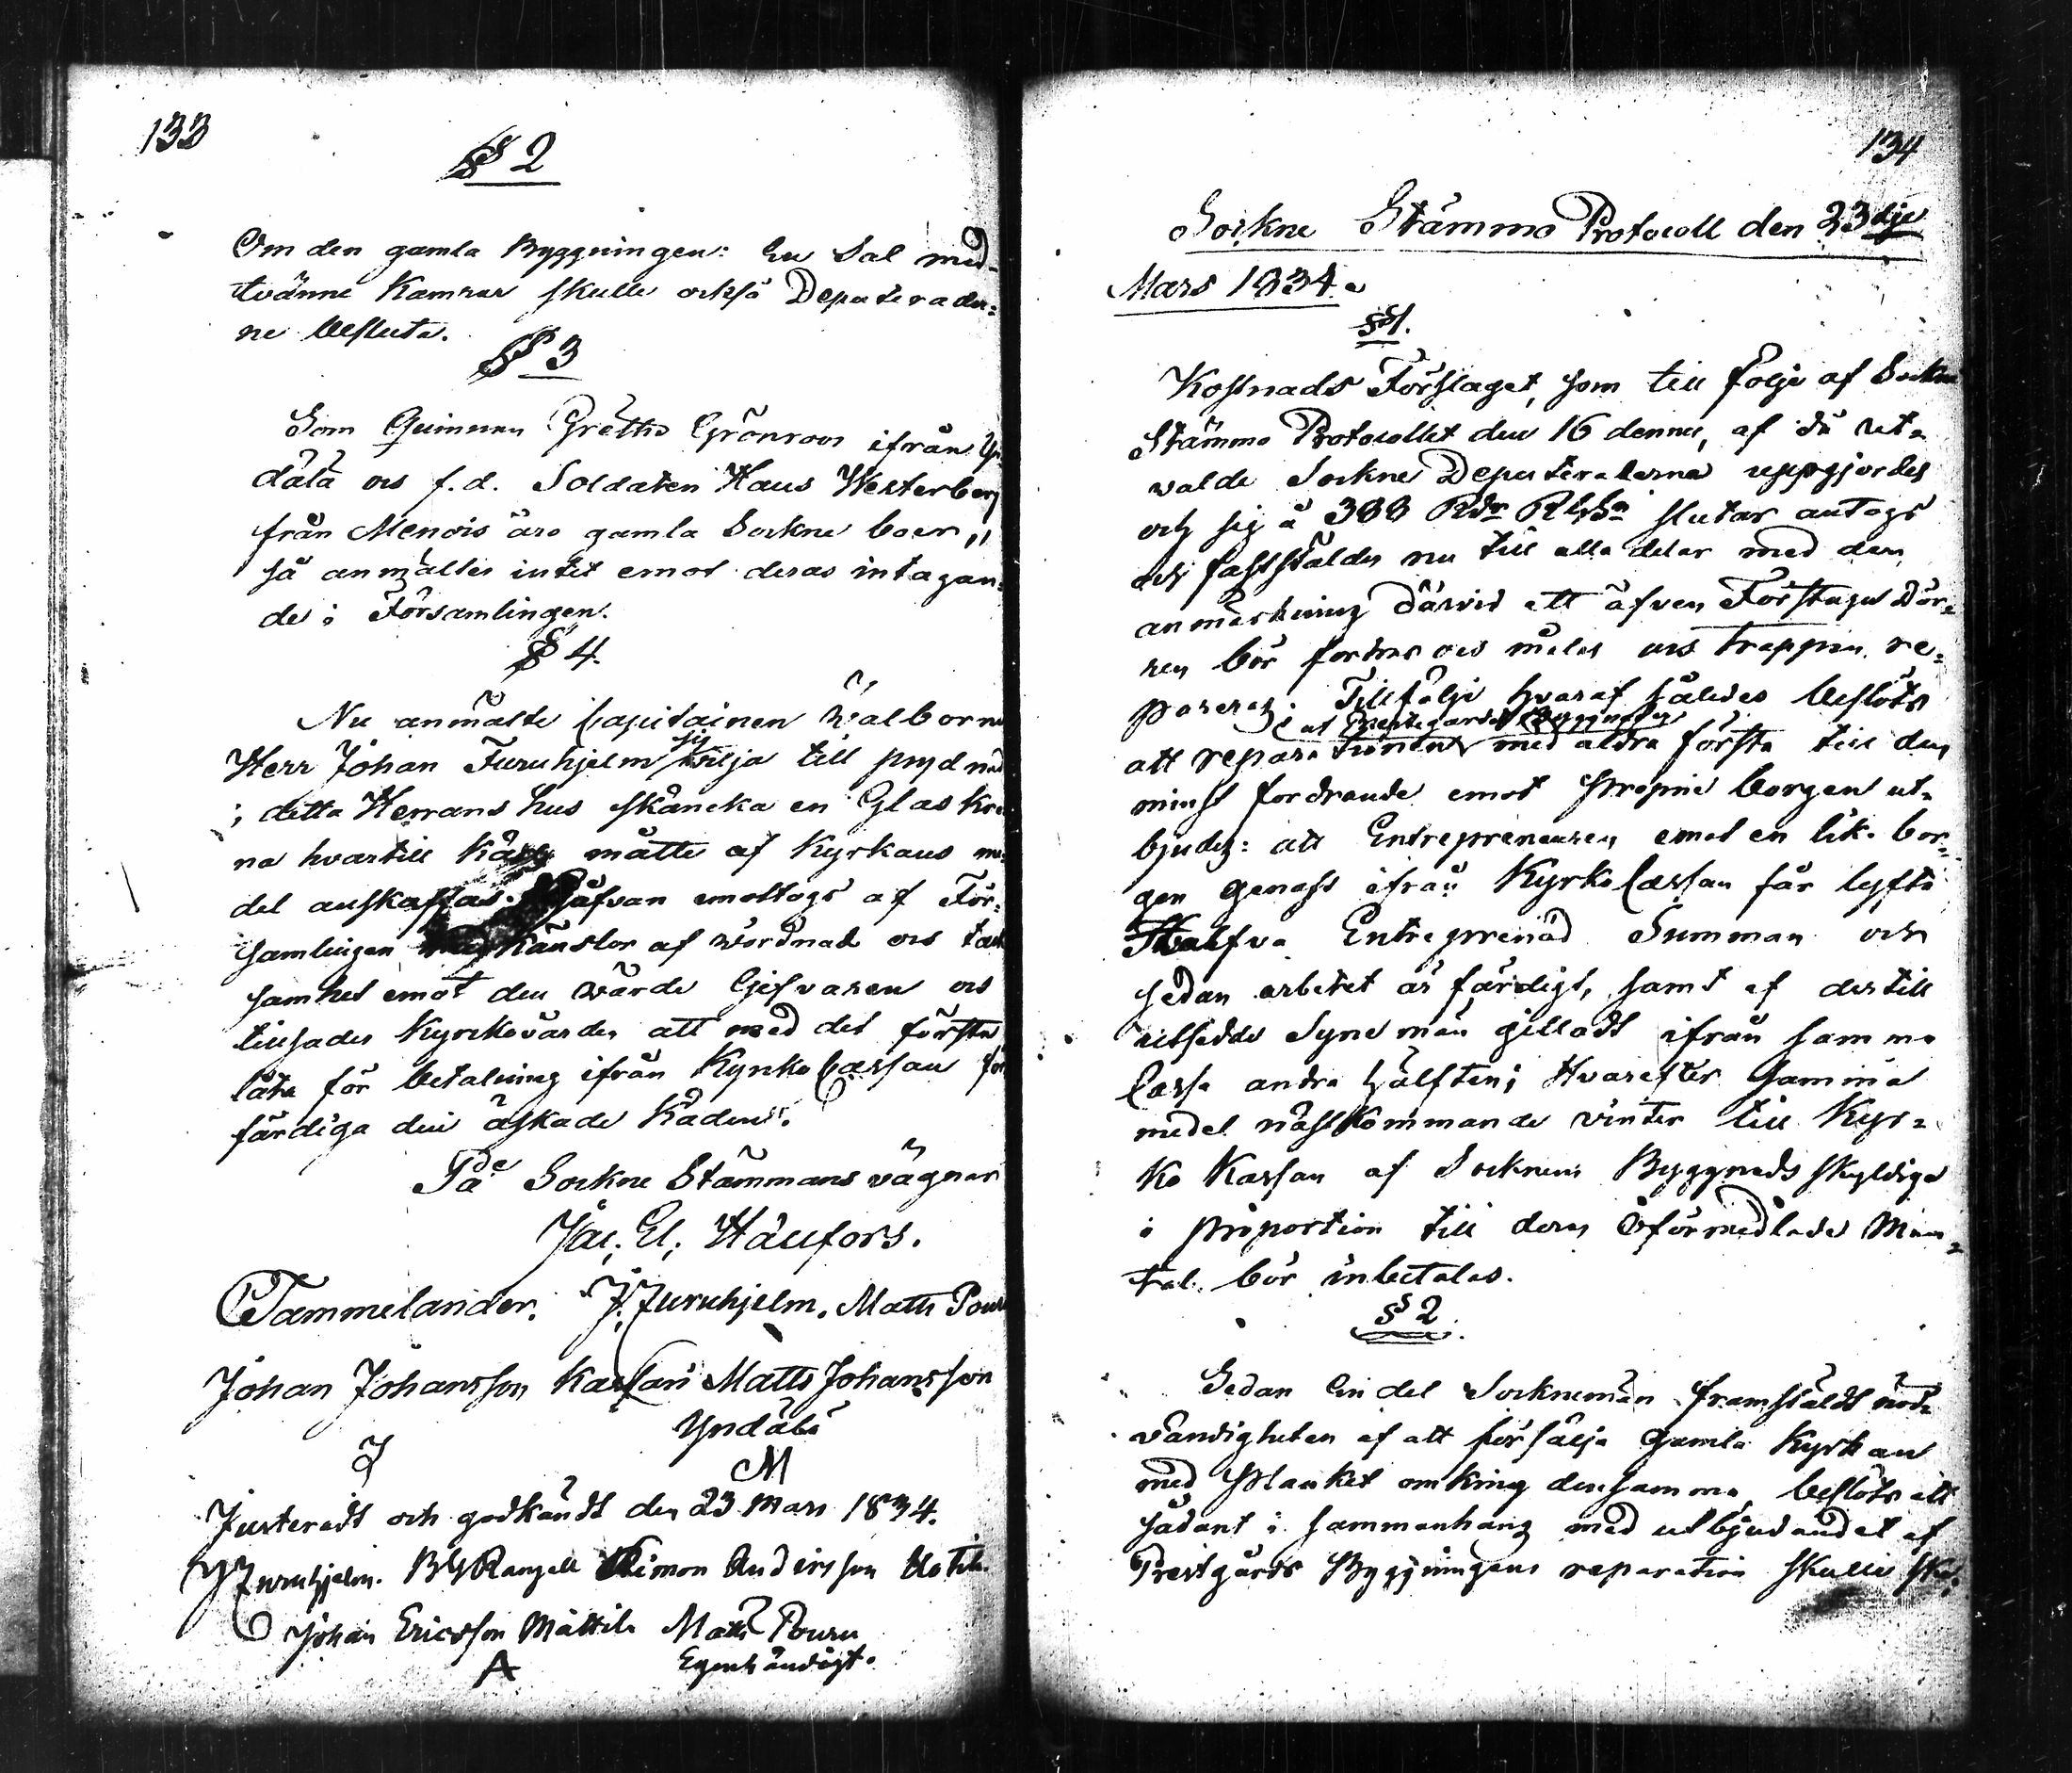 133
§ 2
Om den gamla Byggningen: En Sal med
tvänne Kamrar skulle också Deputerader=
ne besluta.
§ 3
Som Qvinnan Gretha Grönroos ifrån
dälä och f.d. Soldaten Hans Westerberg
från Menois äro gamla Sockne boer,,
så anmältes intet emot deras intagan=
de i Församlingen.
§ 4.
Nu anmälte Capitainen Wälborne
Herr Johan Furuhjelm sig vilja till prydnad
i detta Herrans hus skäncka en Glas Kro
na hvartill måtte af Kyrkans me
del anskaffas. Gåfvan emottogs af För=
samlingen med känslor af wördnad och tack
samhet emot den wärde Gifvaren och
tillsades Kyrckovärden att med det första
låta för betalning ifrån Kyrko Cassan för
färdiga den äskade Käden.
På Sockne Stämmans vägnar
Jac. El. Hällfors.
CTammelander. J. Furuhjelm. Matts Pouru
Johan Johansson Matts Johansson
Yndälä
J M
Justeradt och godkändt den 23 Mars 1834.
JFuruhjelm. Simon Andersson
Johan Ericsson Mattila Matts Pouru
A Egenhändigt.
134
Sockne Stämmo Protocoll den 23dje
Mars 1834.
§ 1.
Kostnads Förslaget, som till följe af Sockne
Stämmo Protocollet den 16 dennes, af då ut=
walde Sockne Deputeraderna uppgjordes
och sig å 388 Rdr slutar antogs
och fastställdes nu till alla delar med den
anmärkning därvid att äfven Förstugu Dör=
ren bör fodras och målas och trappan re=
pareras. Tillfölje hvaraf således beslöts
af Prestegårds Byggningen
att reparationen med aldra första till den
minst fordrande emot proprie borgen ut=
bjudes: att Entrepreneuren emot en lik bor=
gen genast ifrån Kyrko Cassan får lyfta
Halfva Entreprenad Summan och
sedan arbetet är färdigt, samt af dertill
utsedde Synemän gilladt ifrån samma
Cassa andra hälften; Hvarefter samma
medel nästkommande vinter till Kyr=
ko Kassan af Socknens Byggnads skyldige
i proportion till deras oförmedlade Man=
tal bör inbetalas.
§ 2
Sedan En del Sockneman framstäldt nöd=
vändigheten af att försälja Gamla Kyrkan
med Planket omkring densamma, beslöts att
sådant i sammanhang med utbjudandet af
Prestgårds Byggningens reparation skulle ske.